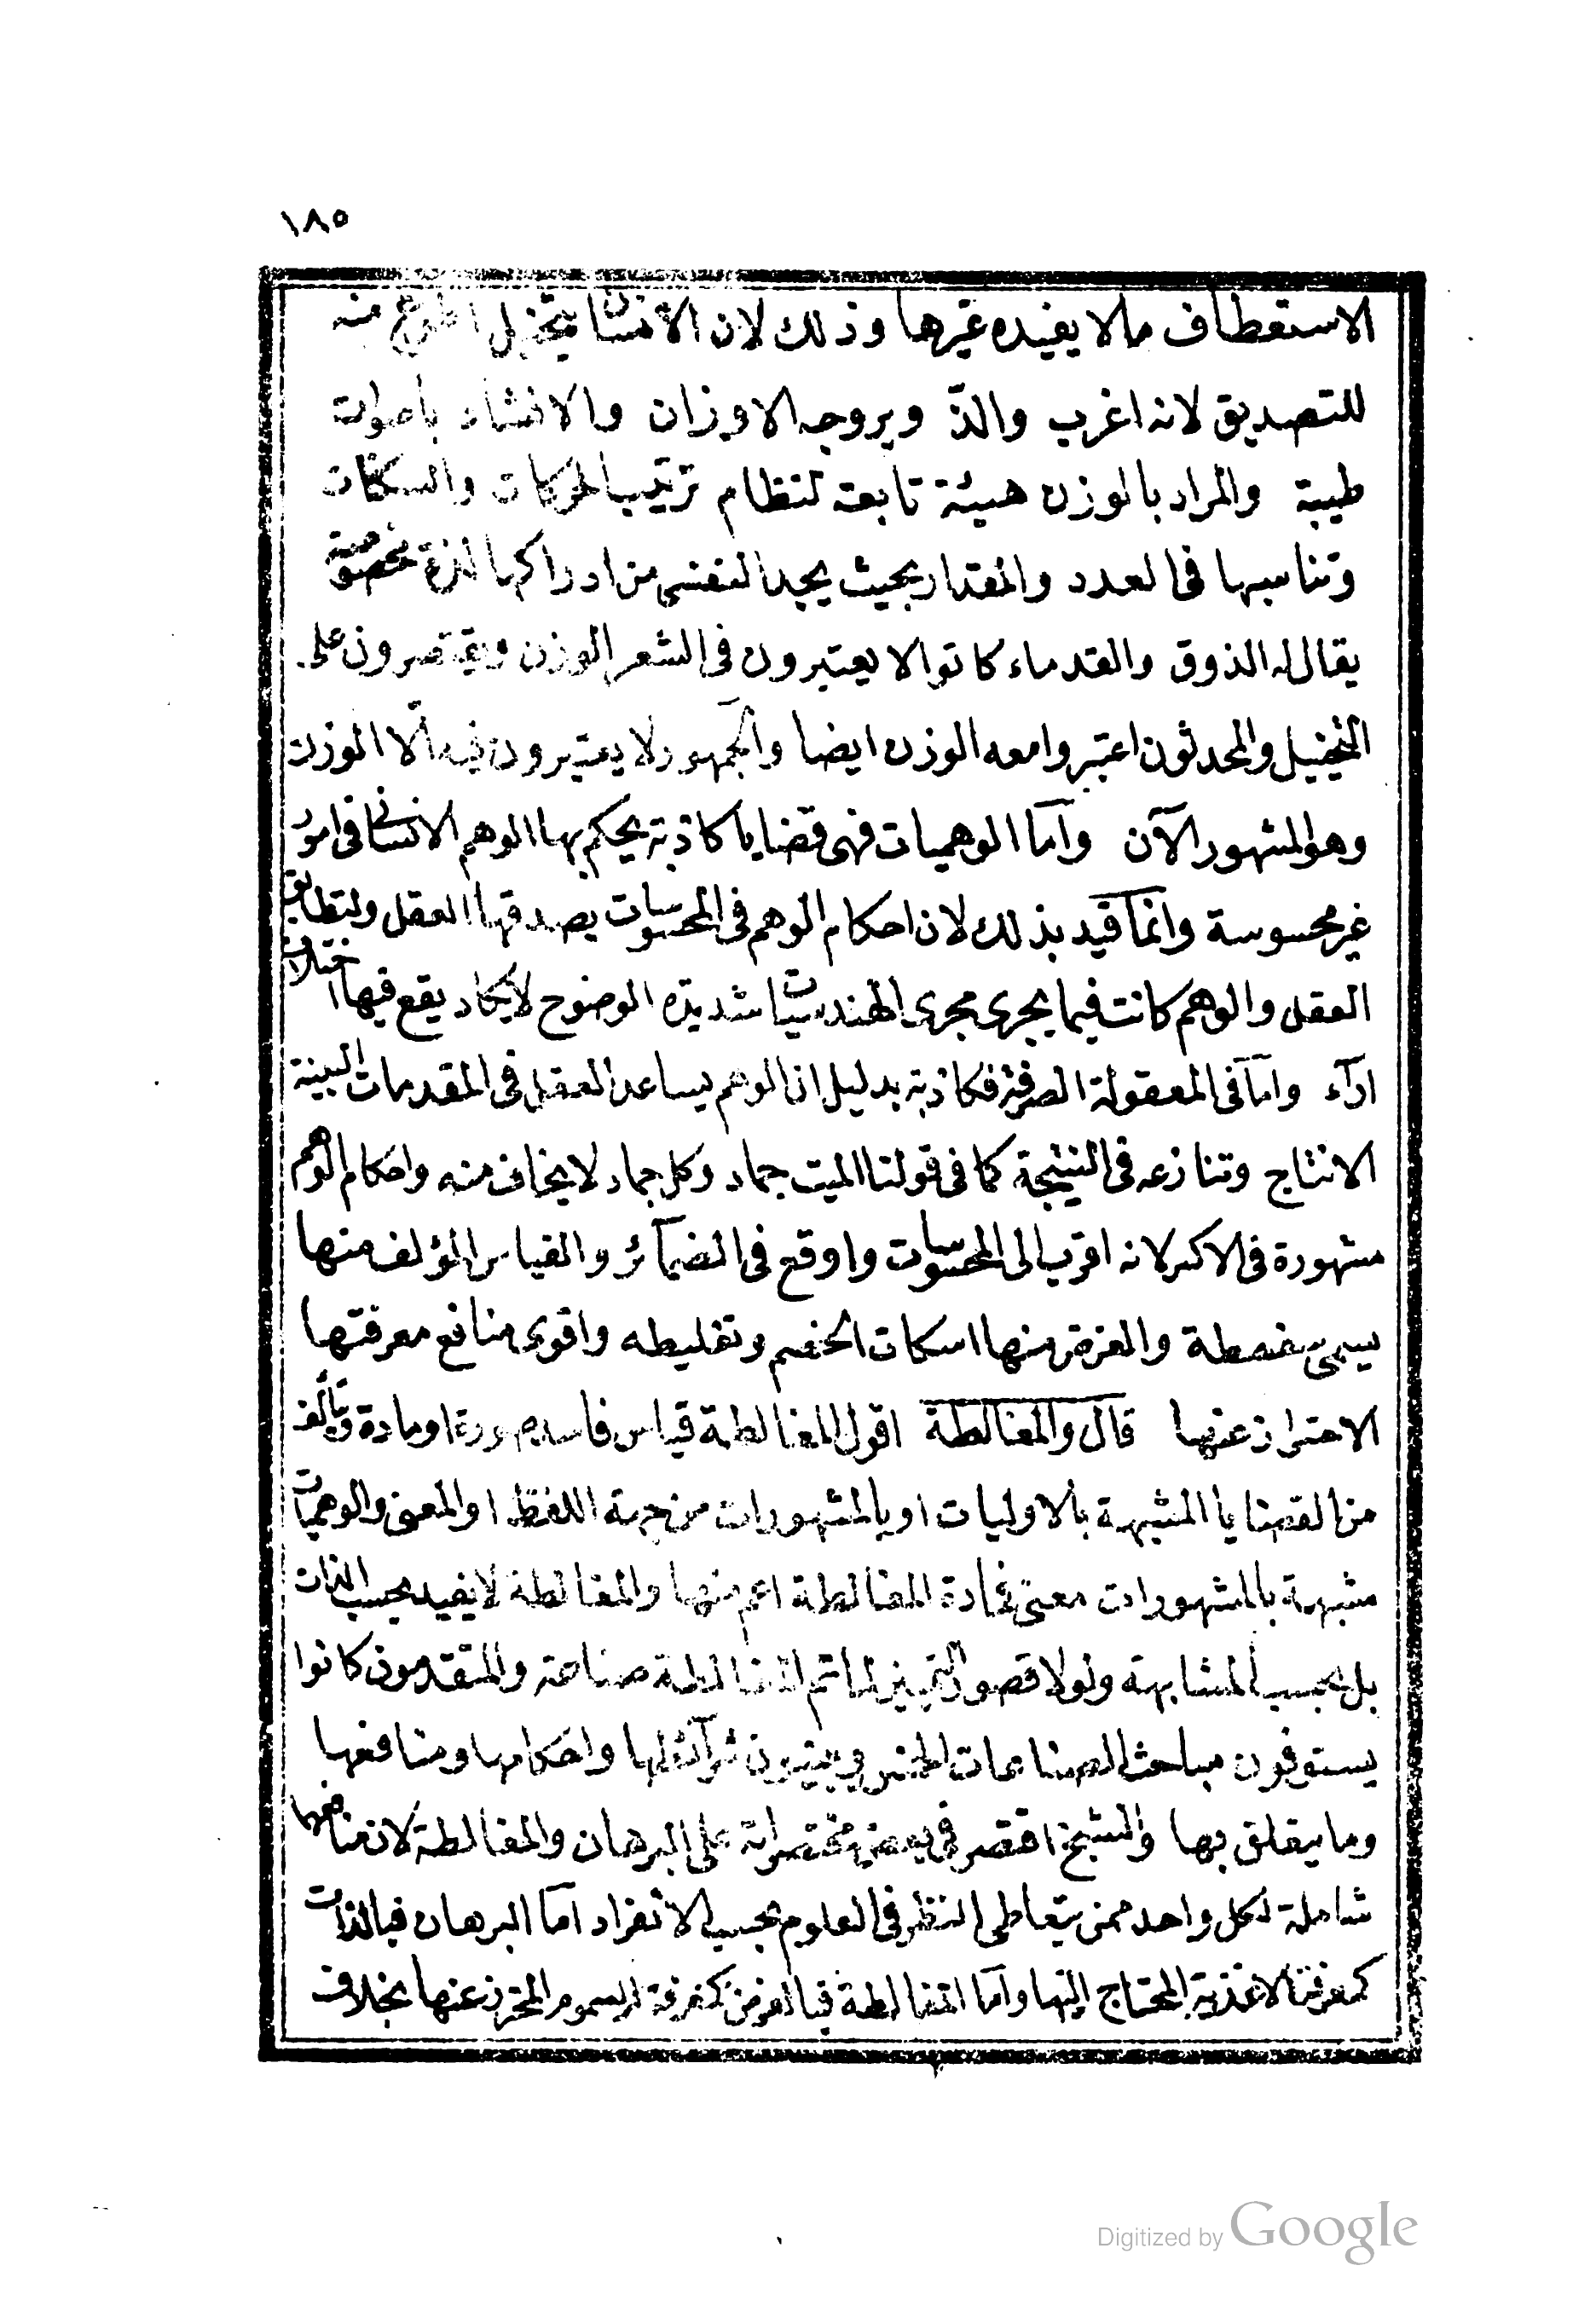 ١٨٥
الاستعطاف مالا يفيده غيرها وذلك لان الانسان يتخيل اطوع منه
للتصديق لانه اغرب والذّ ويروجه الاوزان والانشاد باصوات
طيبة والمراد بالوزن هيئة تابعة لنظام ترتيب الحركات والسكنات
وتناسبها فى العدد والمقدار بحيث يجد النفس من ادراكها لذة مخصوصة
يقال له الذوق والقدماء كانوا لا يعتبرون فى الشعر الوزن ويقتصرون على
التخييل والمحدثون اعتبروا معه الوزن ايضا والجمهور لا يعتبرون فيه الّا الوزن
وهو المشهور الآن وامّا الوهميات فهى قضايا كاذبة يحكم بها الوهم الانسانى فى امور
غير محسوسة وانما قيد بذلك لان احكام الوهم فى المحسوسات يصدقها العقل ولتطابق
العقل والوهم كانت فيما يجرى مجرى الهندسيات شديدة الوضوح لا يكاد يقع فيها اختلاف
ارآء وامّا فى المعقولة الصرفة فكاذبة بدليل ان الوهم يساعد العقل فى المقدمات البينة
الانتاج وتنازعه فى النتيجة كما فى قولنا الميت جماد وكل جماد لا يخاف منه واحكام الوهم
مشهورة فى الاكثر لانه اقرب الى المحسوسات واوقع فى الضمآئر والقياس المؤلف منها
يسمى سفسطة والغرض منها اسكات الخصم وتغليطه واقوى منافع معرفتها
الاحتراز عنها قال والمغالطة اقول المغالطة قياس فاسد صورة او مادة وتأليفه
من القضايا المشبهة بالاوليات او بالمشهورات من جهة اللفظ او المعنى والوهميات
مشبهة بالمشهورات معنى فمادة المغالطة اعم منها والمغالطة لا يفيد بحسب الذات
بل بحسب المشابهة ولولا قصور التمييز لما تم المغالطة صناعة والمتقدمون كانوا
يستوفون مباحث الصناعات الخمس ويبينون شرآئطها واحكامها ومنافعها
وما يتعلق بها والشيخ اقتصر فى بعض مختصراته على البرهان والمغالطة لان منافعها
شاملة لكل واحد ممن يتعاطى النظر فى العلوم بحسب الانفراد امّا البرهان فبالذات
كمعرفتنا الاغذية المحتاج اليها وامّا المغالطة فبالعرض كمعرفة السموم المحترز عنها بخلاف
Digitized by Google